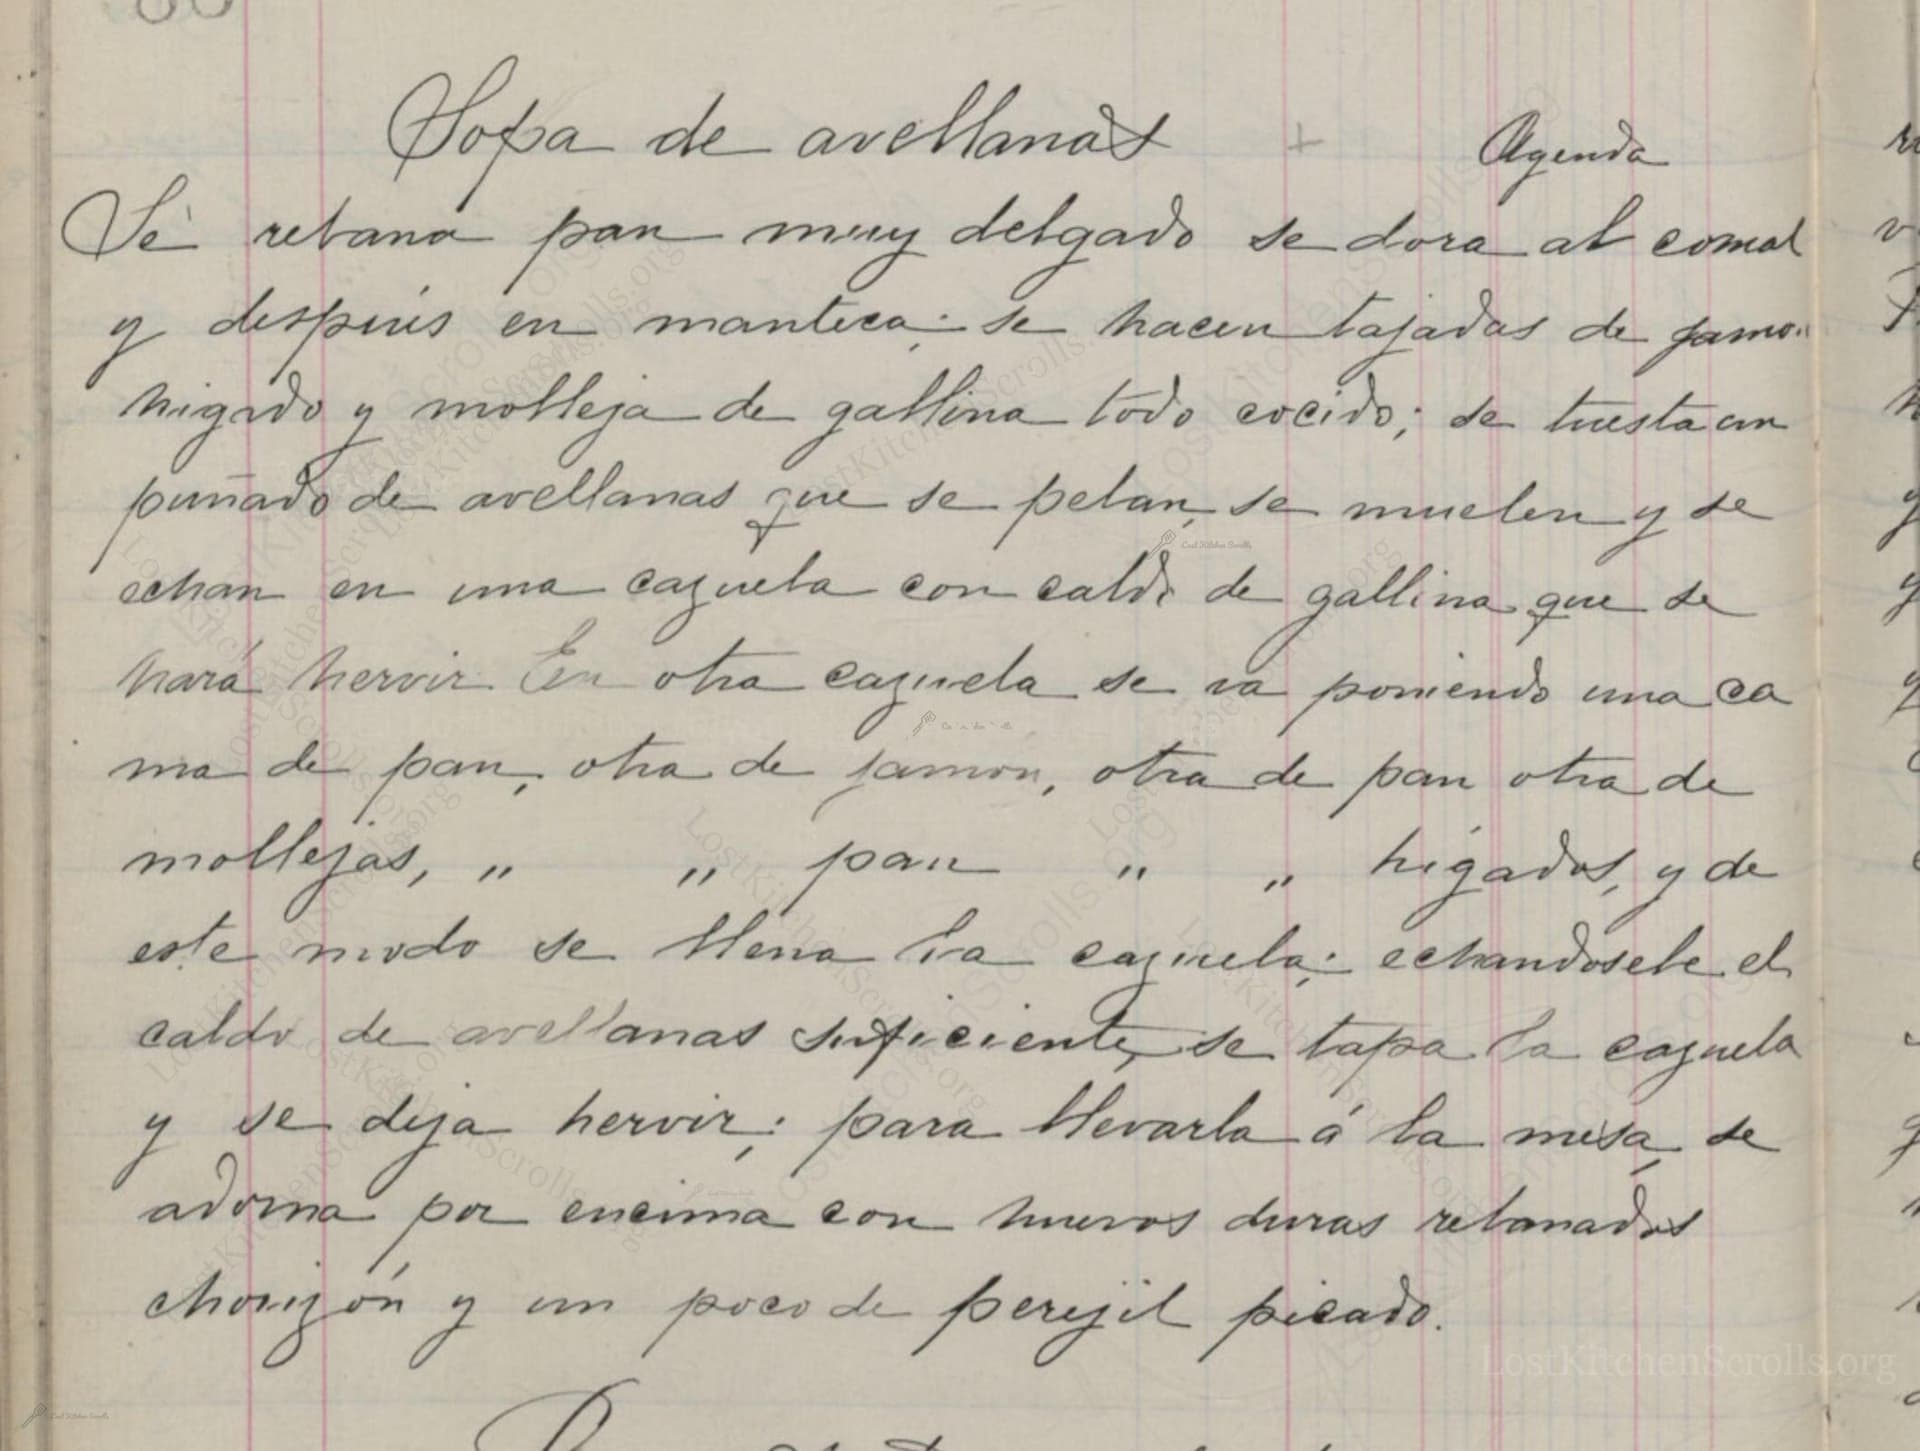 Sopa de avellanas + Agenda
Sé rebana pan muy delgado se dora al comal
y después en manteca; se hacen tajadas de jamon
higado y molleja de gallina todo cocido; se tuesta un
puñado de avellanas que se pelan, se muelen y se
echan en una cazuela con caldo de gallina que se
hará hervir En otra cazuela se va poniendo una ca
ma de pan, otra de jamon, otra de pan otra de
mollejas, „ „ pan „ „ higados, y de
este modo se llena la cazuela; echandosele el
caldo de avellanas suficiente, se tapa la cazuela
y se deja hervir; para llevarla á la mesa, se
adorna por encima con huevos duros rebanados
chorizón y un poco de perejil picado.
LostKitchenScrolls.org